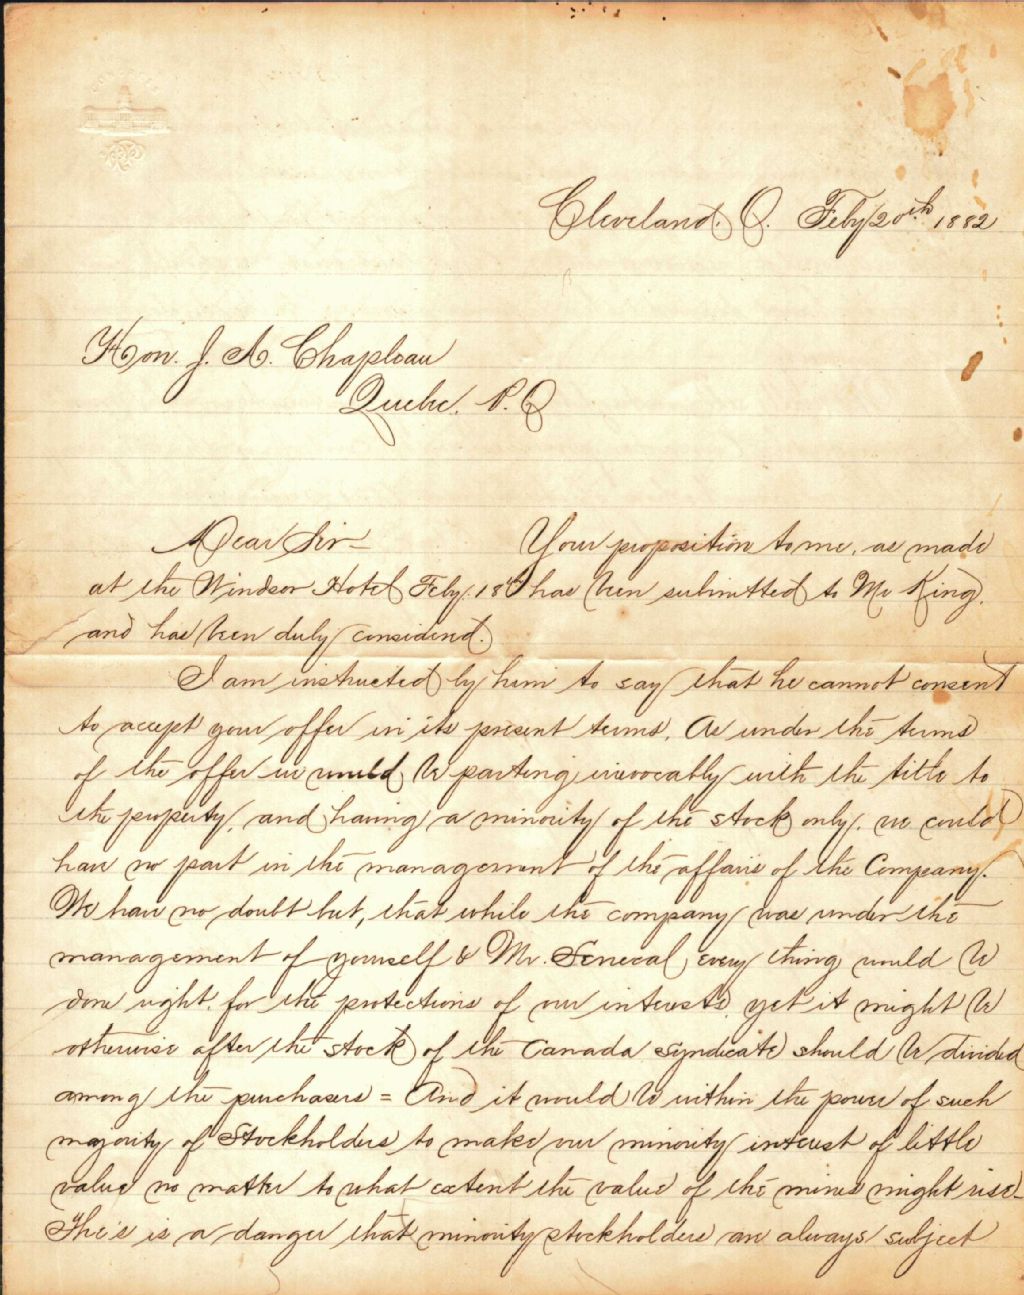 CONGRESS
Cleveland, O. Feby 20th 1882
Hon. J. A. Chapleau
Quebec. P. Q
Dear Sir— Your proposition to me, as made
at the Windsor Hotel Feby. 18th has been submitted to Mr King,
and has been duly considered.
I am instructed by him to say that he cannot consent
to accept your offer in its present terms. As under the terms
of the offer we would be parting irrevocably with the title to
the property, and having a minority of the stock only, we could
have no part in the management of the affairs of the Company.
We have no doubt but, that while the company was under the
management of yourself & Mr. Senecal, every thing would be
done right, for the protections of our interests, yet it might be
otherwise after the stock of the Canada Syndicate should be divided
among the purchasers = And it would be within the power of such
majority of Stockholders to make our minority interest of little
value no matter to what extent the value of the mines might rise—
This is a danger that minority stockholders are always subject